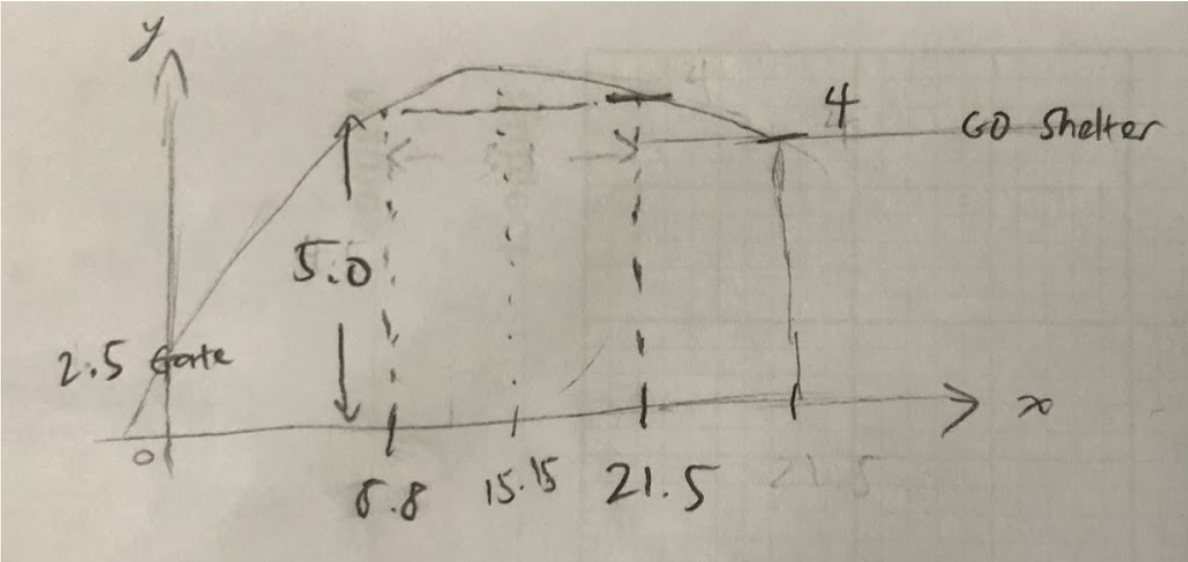 y
4
GO Shelter
5.0
2.5 Gate
x
0
8.8 15.15 21.5 21.5